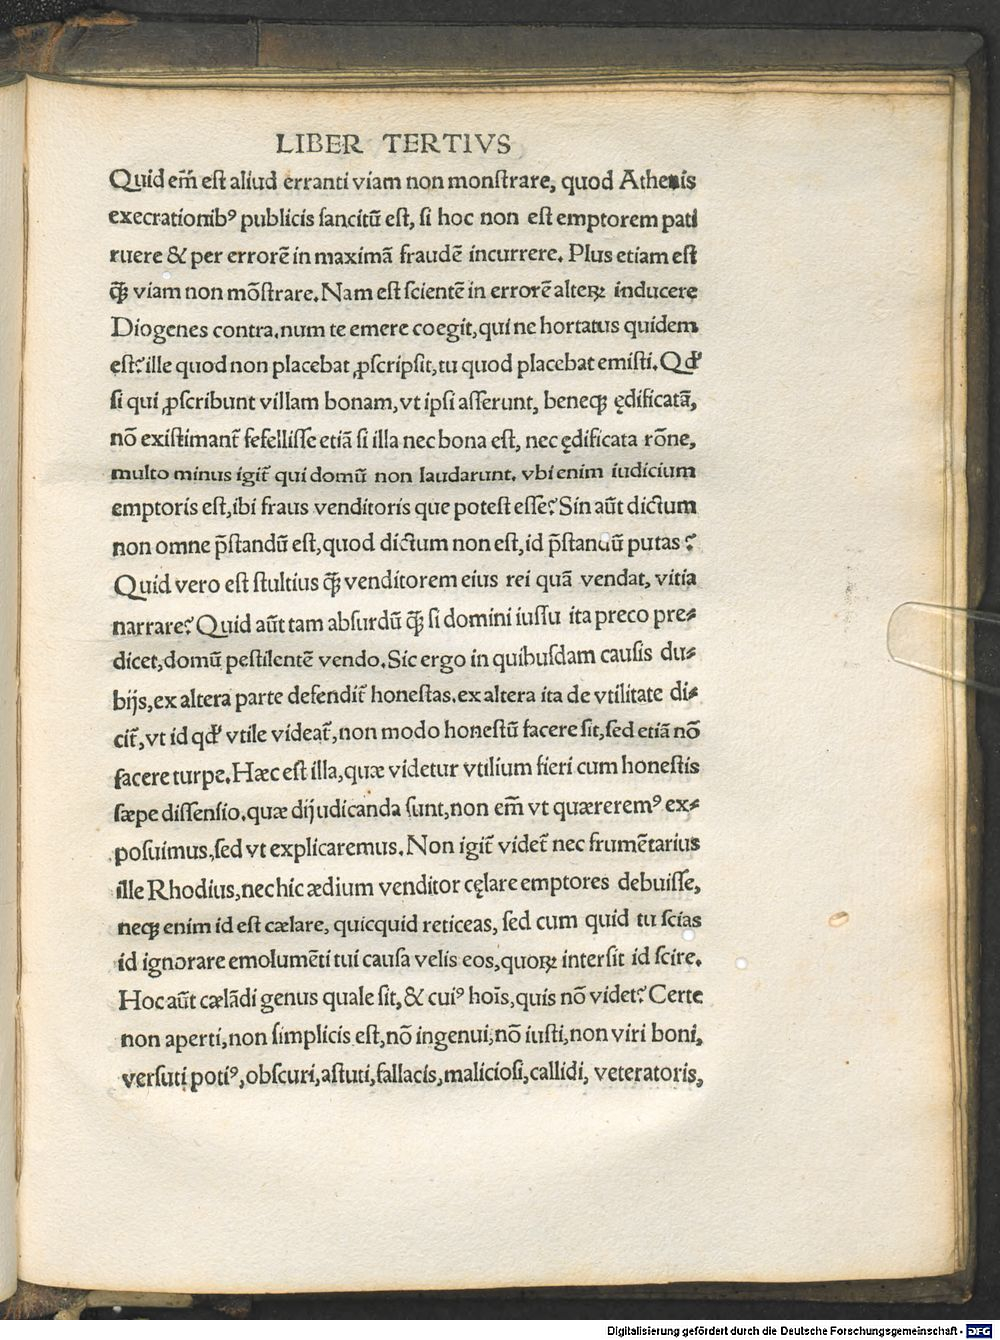 LIBER TERTIVS
Quid em̃ est aliud erranti viam non monstrare, quod Athenis
execrationibꝰ publicis sancitũ est, si hoc non est emptorem pati
ruere & per errorẽ in maximã fraudẽ incurrere. Plus etiam est
q̃ꝫ viam non mõstrare. Nam est scientẽ in errorẽ alteꝝ inducere
Diogenes contra, num te emere coegit, qui ne hortatus quidem
est? ille quod non placebat ꝓscripsit, tu quod placebat emisti. Qđ
si qui ꝓscribunt villam bonam, vt ipsi asserunt, beneqꝫ ędificatã,
nõ existimant̃ fefellisse etiã si illa nec bona est, nec ędificata rõne,
multo minus igit̃ qui domũ non laudarunt. vbi enim iudicium
emptoris est, ibi fraus venditoris que potest esse? Sin aũt dictum
non omne p̃standũ est, quod dictum non est, id p̃standũ putas?
Quid vero est stultius q̃ꝫ venditorem eius rei quã vendat, vitia
narrare? Quid aũt tam absurdũ q̃ꝫ si domini iussu ita preco pre⸗
dicet, domũ pestilentẽ vendo. Sic ergo in quibusdam causis du⸗
bijs, ex altera parte defendit̃ honestas. ex altera ita de vtilitate di⸗
cit̃, vt id qđ vtile videat̃, non modo honestũ facere sit, sed etiã nõ
facere turpe. Hæc est illa, quæ videtur vtilium fieri cum honestis
sæpe dissensio. quæ dijudicanda sunt, non em̃ vt quæreremꝰ ex⸗
posuimus, sed vt explicaremus. Non igit̃ videt̃ nec frumẽtarius
ille Rhodius, nec hic ædium venditor cęlare emptores debuisse,
neqꝫ enim id est cælare, quicquid reticeas, sed cum quid tu scias
id ignorare emolumẽti tui causa velis eos, quoꝝ intersit id scire.
Hoc aũt cælãdi genus quale sit, & cuiꝰ hoĩs, quis nõ videt? Certe
non aperti, non simplicis est, nõ ingenui, nõ iusti, non viri boni,
versuti potiꝰ, obscuri, astuti, fallacis, maliciosi, callidi, veteratoris,
Digitalisierung gefördert durch die Deutsche Forschungsgemeinschaft - DFG